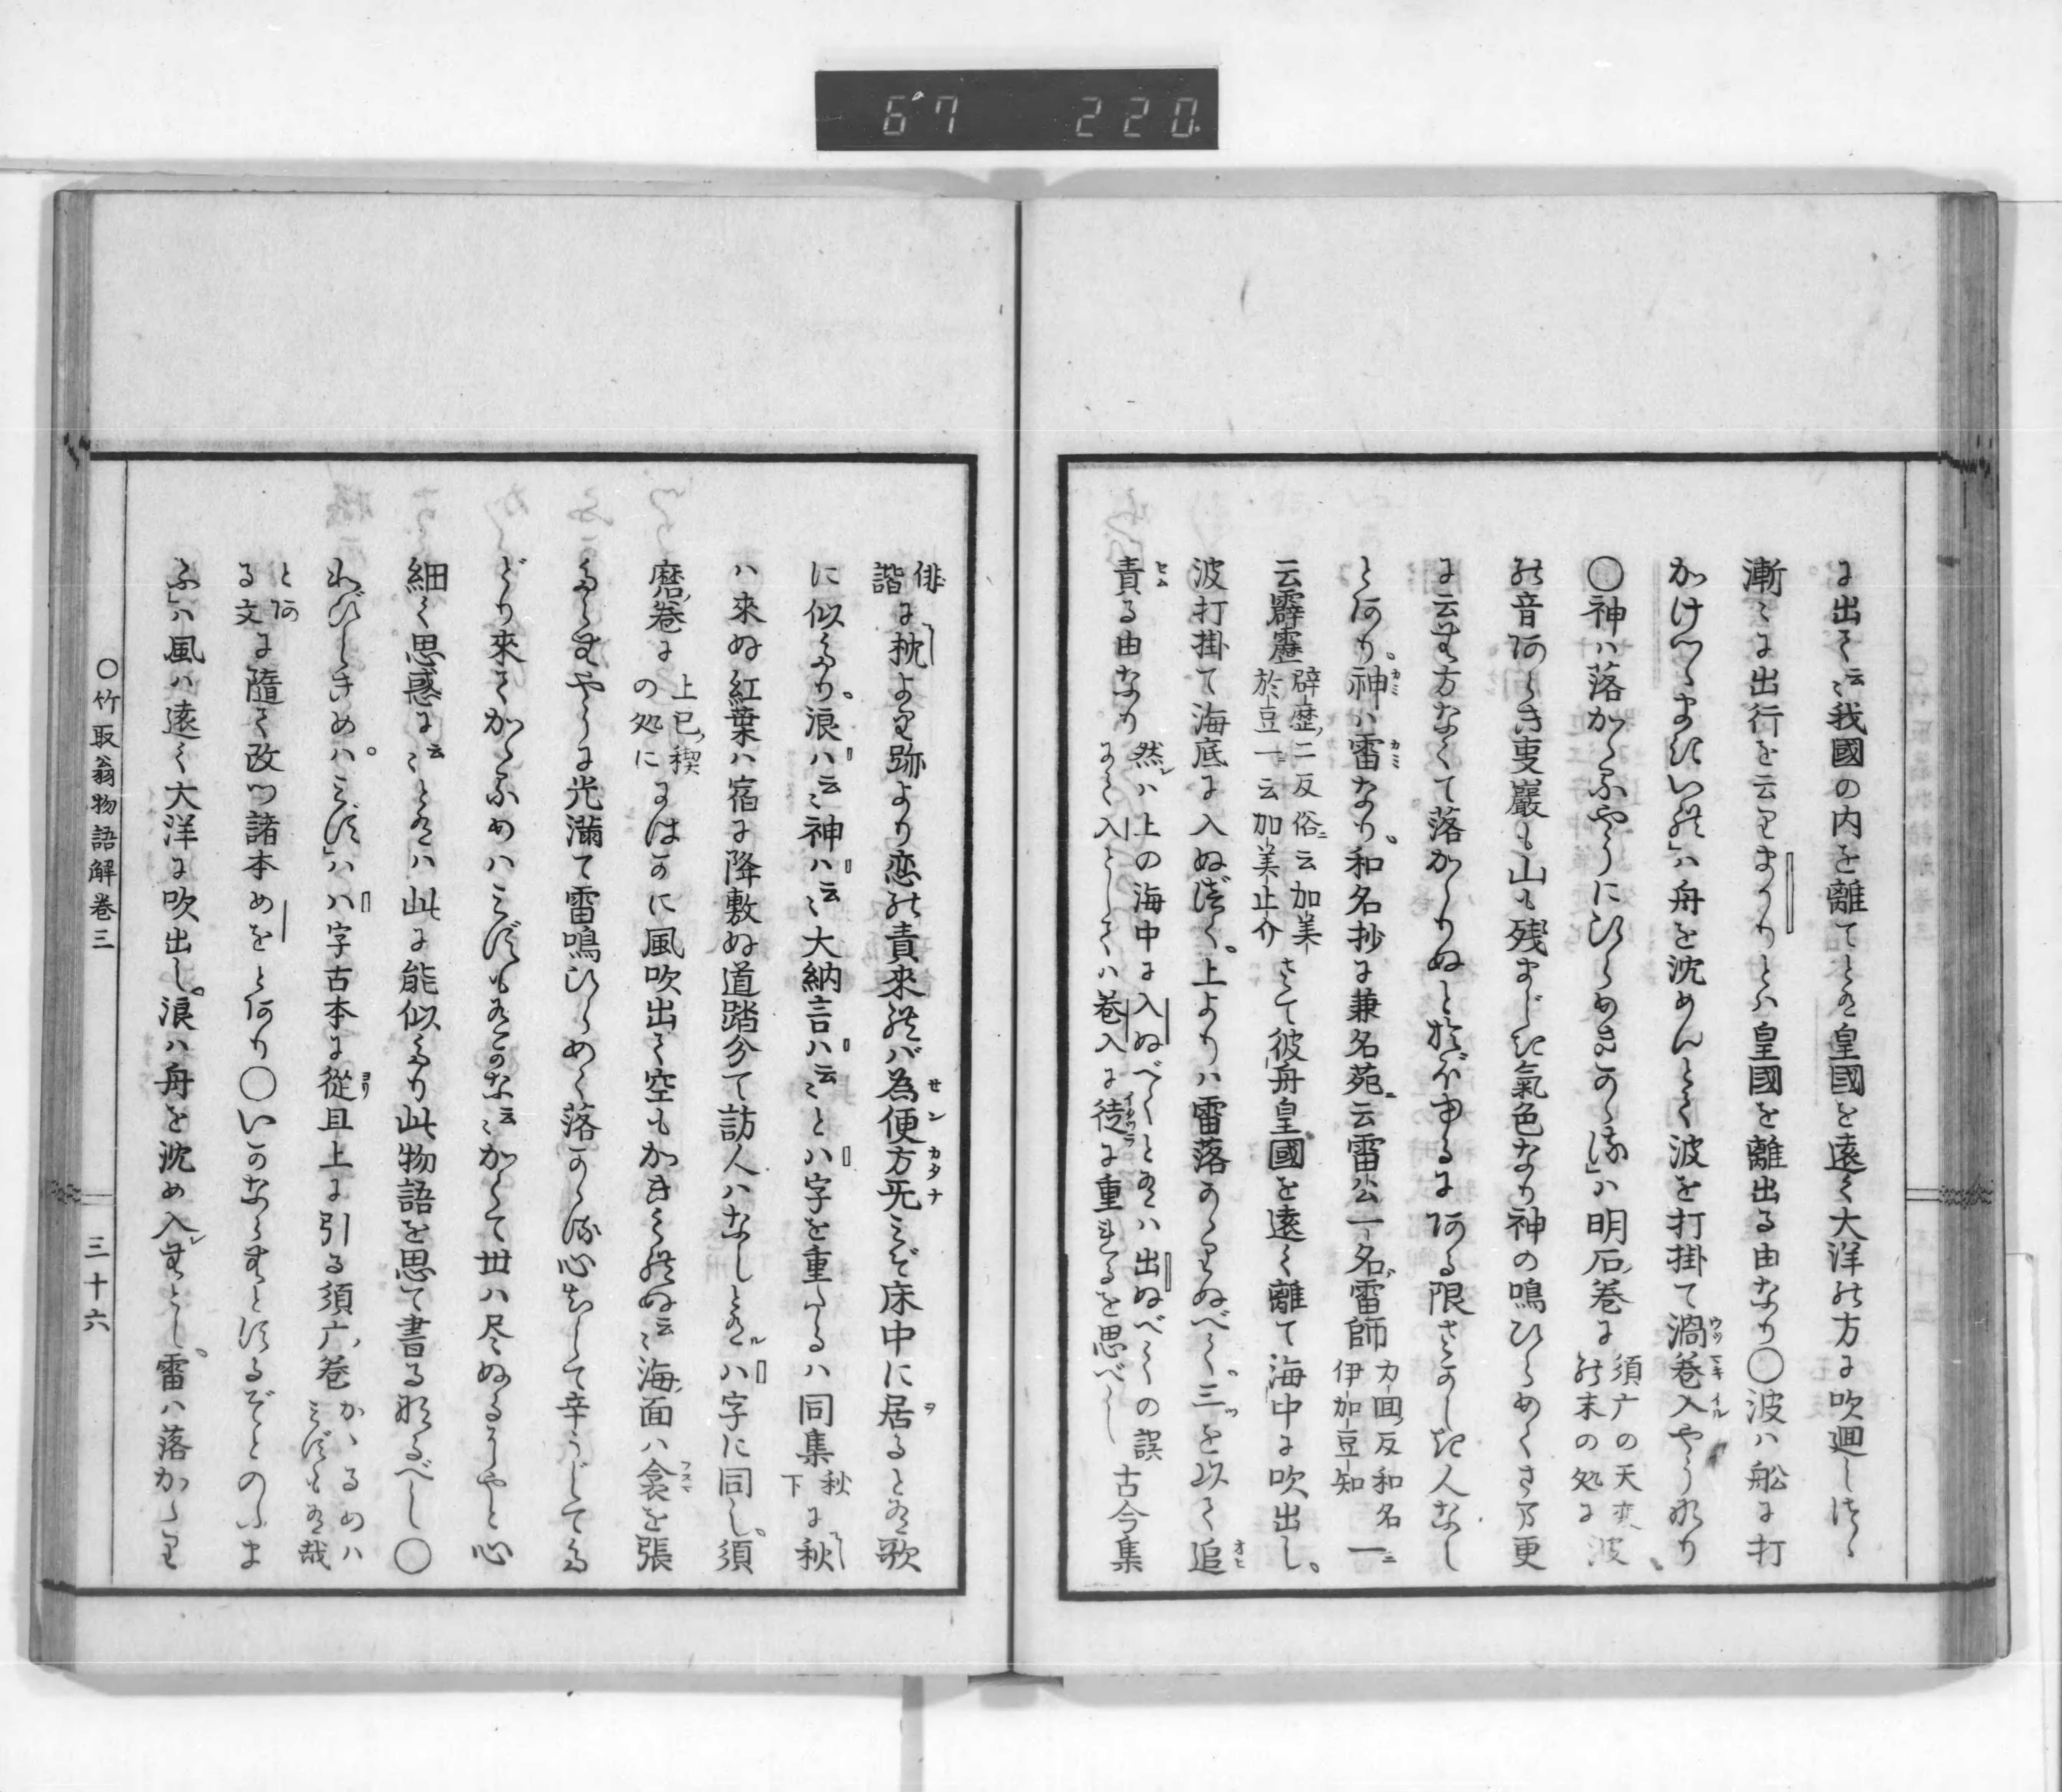 67 220
に出て云々我國の内を離てといふ皇國を遠く大洋の方に吹廻しつゝ
漸々に出行を云りまかりとハ皇國を離出る由なり○波ハ舩に打
かけつゝまきいれハ舟を沈めんとて波を打掛て渦巻入やうなり
○神ハ落かゝるやうにひらめきかゝるハ明石巻に須广の天変の末の処に波
の音あらき事巖も山も残ましき氣色なり神の鳴ひらめくさま更
に云む方なくて落かゝりぬとおぼゆるにある限さかしき人なし
とあり神ハ雷なり和名抄に兼名苑云雷公一名雷師力回反和名一伊加豆知
云霹靂辟歴二反俗云加美於豆一云加美止介さて彼舟皇國を遠く離て海中に吹出し
波打掛て海底に入ぬべく上よりハ雷落かゝりぬべく三を以て追
責る由なり然ハ上の海中に入ぬべくといふハ出ぬべくの誤にて入としてハ巻入に徒に重れるを思べし古今集
俳諧に枕より跡より恋の責来れバ為便方旡ミぞ床中に居るといふ歌
に似たり浪ハ云々神ハ云々大納言ハ云々とハ字を重たるハ同集秋下に秋
ハ來ぬ紅葉ハ宿に降敷ぬ道踏分て訪人ハなしといふハ字に同し須
磨巻に上巳禊の処ににはかに風吹出て空もかきくれぬ云々海面ハ衾を張
たらむやうに光滿て雷鳴ひらめく落かゝる心ちして辛うじてた
どり來てかゝるめハミずもあるかな云々かくて世ハ尽ぬるにやと心
細く思惑に云々とあるハ此に能似たり此物語を思て書る成るべし○
わびしきめハミず」ハハ字古本に從且上に引る須广巻かゝるめハミずもある哉
とある文に隨て改つ諸本めをとあり○いかならむとするぞとのたま
ふ」ハ風ハ遠く大洋に吹出し浪ハ舟を沈め入むとし雷ハ落かゝり
○竹取翁物語解卷三
三十六